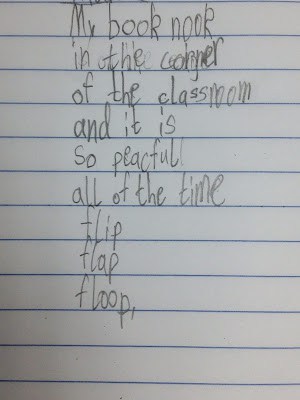 My book nook
in the corner
of the classroom
and it is
So peacfull
all of the time
flip
flap
floop,